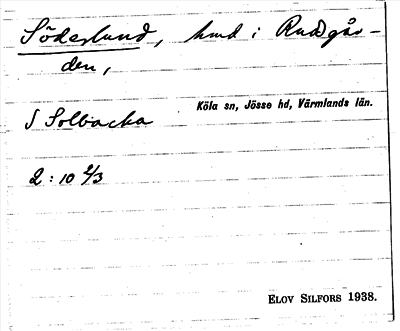 Söderlund, hmd i Ruddgår-
den,
Köla sn, Jösse hd, Värmlands län.
S Solbacka
2:10 2/3
ELOV SILFORS 1938.